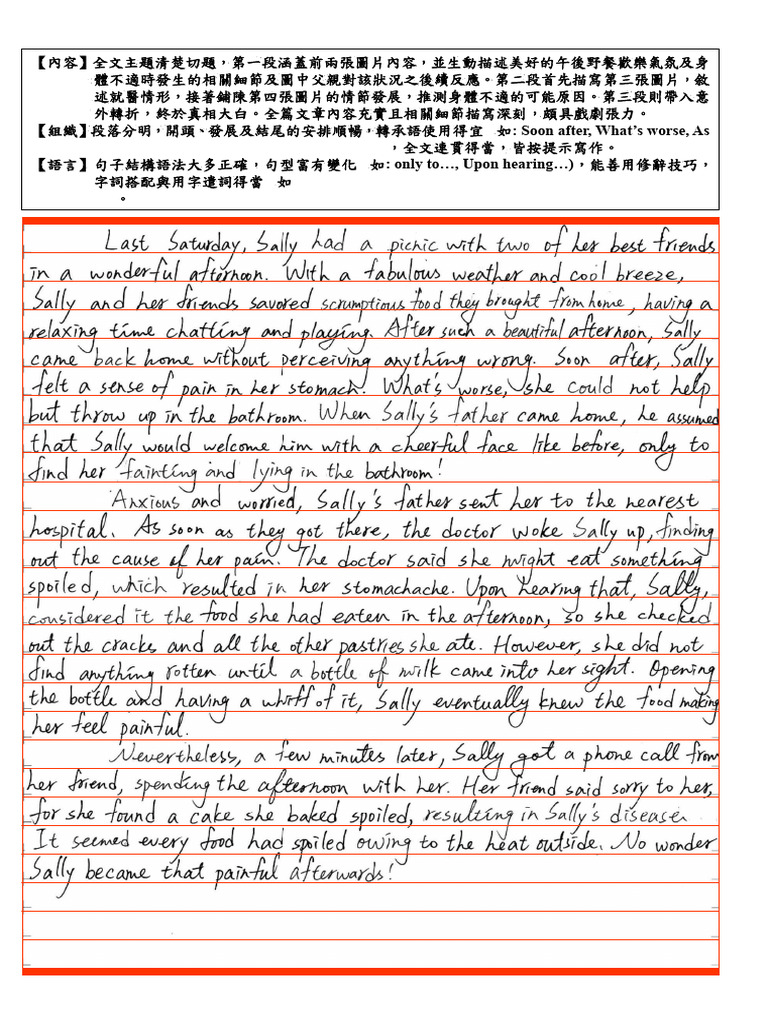 【內容】全文主題清楚切題，第一段涵蓋前兩張圖片內容，並生動描述美好的午後野餐歡樂氣氛及身
體不適時發生的相關細節及圖中父親對該狀況之後續反應。第二段首先描寫第三張圖片，敘
述就醫情形，接著鋪陳第四張圖片的情節發展，推測身體不適的可能原因。第三段則帶入意
外轉折，終於真相大白。全篇文章內容充實且相關細節描寫深刻，頗具戲劇張力。
【組織】段落分明，開頭、發展及結尾的安排順暢，轉承語使用得宜 如: Soon after, What's worse, As
，全文連貫得當，皆按提示寫作。
【語言】句子結構語法大多正確，句型富有變化 如: only to…, Upon hearing…)，能善用修辭技巧，
字詞搭配與用字遣詞得當 如
。
Last Saturday, Sally had a picnic with two of her best friends
in a wonderful afternoon. With a fabulous weather and cool breeze,
Sally and her friends savored scrumptious food they brought from home, having a
relaxing time chatting and playing. After such a beautiful afternoon, Sally
came back home without perceiving anything wrong. Soon after, Sally
felt a sense of pain in her stomach. What's worse, she could not help
but throw up in the bathroom. When Sally's father came home, he assumed
that Sally would welcome him with a cheerful face like before, only to
find her fainting and lying in the bathroom!
Anxious and worried, Sally's father sent her to the nearest
hospital. As soon as they got there, the doctor woke Sally up, finding
out the cause of her pain. The doctor said she might eat something
spoiled, which resulted in her stomachache. Upon hearing that, Sally,
considered it the food she had eaten in the afternoon, so she checked
out the cracks and all the other pastries she ate. However, she did not
find anything rotten until a bottle of milk came into her sight. Opening
the bottle and having a whiff of it, Sally eventually knew the food making
her feel painful.
Nevertheless, a few minutes later, Sally got a phone call from
her friend, spending the afternoon with her. Her friend said sorry to her,
for she found a cake she baked spoiled, resulting in Sally's disease.
It seemed every food had spoiled owing to the heat outside. No wonder
Sally became that painful afterwards!